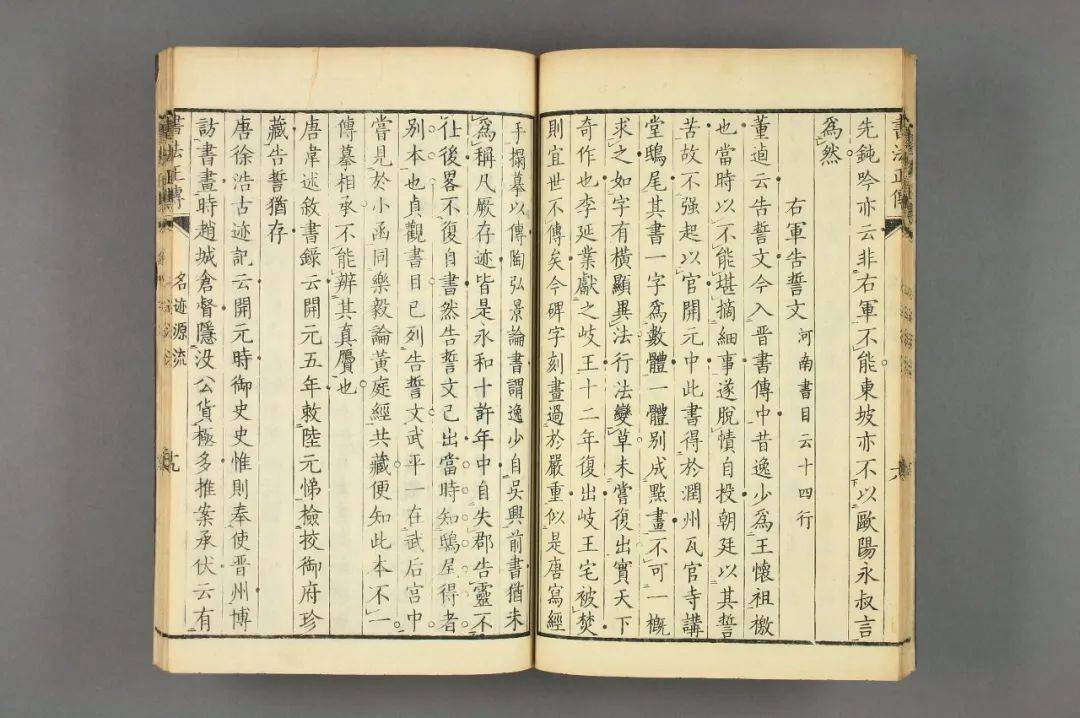 先鈍吟亦云非右軍不能東坡亦不以歐陽永叔言
爲然
右軍告誓文 河南書目云十四行
董逌云告誓文今入晉書傳中昔逸少爲王懷祖檄
也當時以不能堪摘細事遂脫幘自投朝廷以其誓
苦故不强起以官開元中此書得於潤州瓦官寺講
堂鴟尾其書一字爲數體一體別成點畫不可一槪
求之如字有橫顯異法行法變草未嘗復出實天下
奇作也李延業獻之岐王十二年復出岐王宅被焚
則宜世不傳矣今碑字刻畫過於嚴重似是唐寫經
手搨摹以傳陶弘景論書謂逸少自吳興前書猶未
爲稱凡厥存迹皆是永和十許年中自失郡告靈不
仕後畧不復自書然告誓文已出當時知鴟尾得者
別本也貞觀書目已列告誓文武平一在武后宮中
嘗見於小函同樂毅論黃庭經共藏便知此本不一
傳摹相承不能辨其真贋也
唐韋述敘書錄云開元五年敕陸元悌檢挍御府珍
藏告誓猶存
唐徐浩古迹記云開元時御史史惟則奉使晉州博
訪書畫時趙城倉督隱没公貨極多推案承伏云有
書法正傳
名迹源流